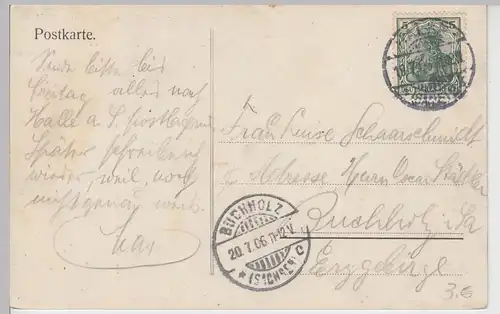 Postkarte.
Sende bitte bis
Freitag alles nach
Halle a S. postlagernd
Später schreibe ich
wieder, weil noch
nicht genau weiß.
5 5
Frau Luise Schaarschmidt
Adresse Herrn Oscar Städtler
Buchholz i. Sa
Erzgebirge
BUCHHOLZ
20.7.06.11-12.V.
* (SACHSEN) C
3.€